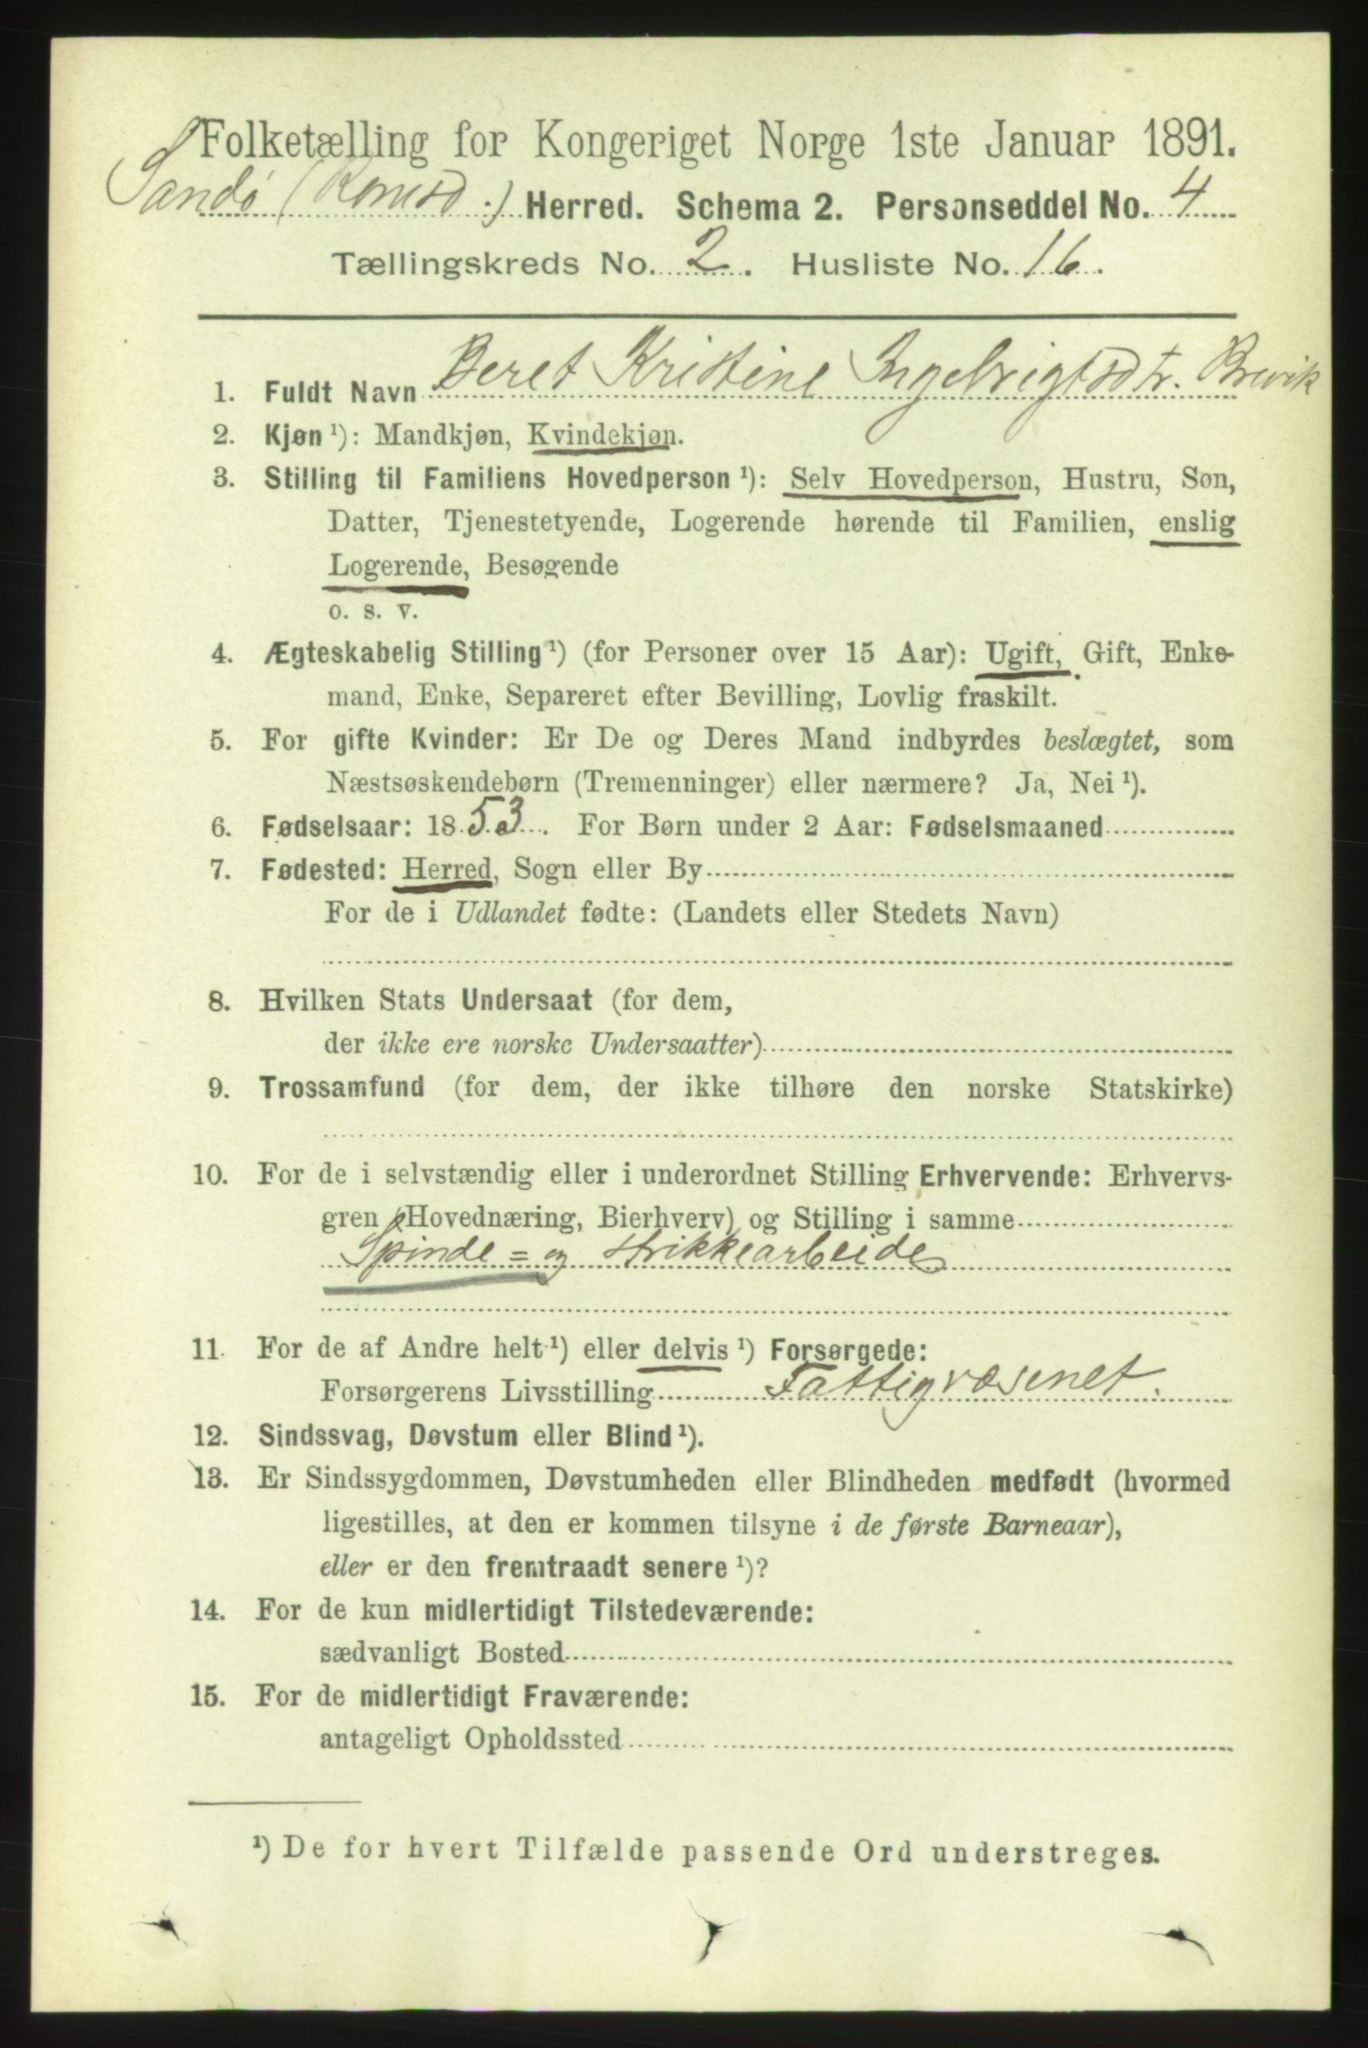 Folketælling for Kongeriget Norge 1ste Januar 1891.
Sandø (Romsd.) Herred. Schema 2. Personseddel No. 4
Tællingskreds No. 2. Husliste No. 16.
1. Fuldt Navn Beret Kristine Ingebrigtsdtr. Brevik
2. Kjøn ¹): Mandkjøn, Kvindekjøn.
3. Stilling til Familiens Hovedperson ¹): Selv Hovedperson, Hustru, Søn,
Datter, Tjenestetyende, Logerende hørende til Familien, enslig
Logerende, Besøgende
o. s. v.
4. Ægteskabelig Stilling ¹) (for Personer over 15 Aar): Ugift, Gift, Enke-
mand, Enke, Separeret efter Bevilling, Lovlig fraskilt.
5. For gifte Kvinder: Er De og Deres Mand indbyrdes beslægtet, som
Næstsøskendebørn (Tremenninger) eller nærmere? Ja, Nei ¹).
6. Fødselsaar: 1853. For Børn under 2 Aar: Fødselsmaaned
7. Fødested: Herred, Sogn eller By
For de i Udlandet fødte: (Landets eller Stedets Navn)
8. Hvilken Stats Undersaat (for dem,
der ikke ere norske Undersaatter)
9. Trossamfund (for dem, der ikke tilhøre den norske Statskirke)
10. For de i selvstændig eller i underordnet Stilling Erhvervende: Erhvervs-
gren (Hovednæring, Bierhverv) og Stilling i samme
Spinde= og strikkearbeide
11. For de af Andre helt ¹) eller delvis ¹) Forsørgede:
Forsørgerens Livsstilling Fattigvæsenet.
12. Sindssvag, Døvstum eller Blind ¹).
13. Er Sindssygdommen, Døvstumheden eller Blindheden medfødt (hvormed
ligestilles, at den er kommen tilsyne i de første Barneaar),
eller er den fremtraadt senere ¹)?
14. For de kun midlertidigt Tilstedeværende:
sædvanligt Bosted
15. For de midlertidigt Fraværende:
antageligt Opholdssted
¹) De for hvert Tilfælde passende Ord understreges.